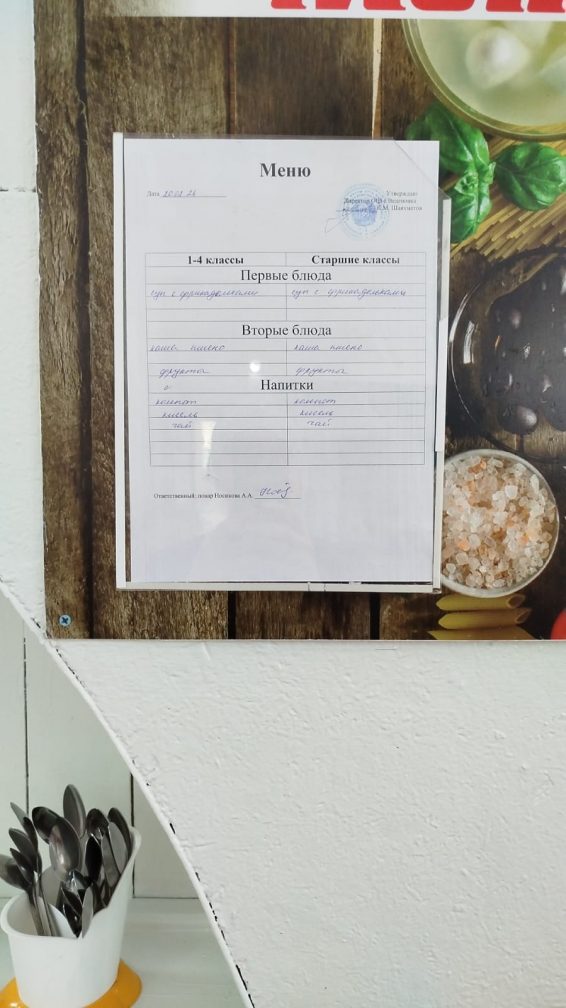 Меню
Дата 20.01.26
Утверждаю
Директор
И.М. Шаяхматов
1-4 классы Старшие классы
Первые блюда
суп с фрикадельками суп с фрикадельками
Вторые блюда
каша пшено каша пшено
фрукты фрукты
Напитки
компот компот
кисель кисель
чай чай
Ответственный: повар Носикова А.А.